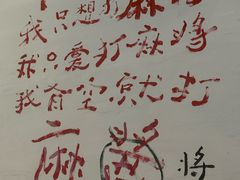 我只想打麻将
我只爱打麻将
我有空就打
麻
将